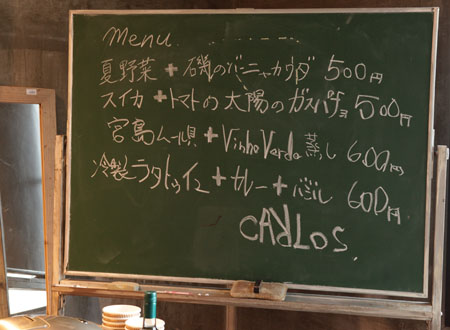 menu
夏野菜 + 磯のバーニャカウダ 500円
スイカ + トマトの太陽のガスパチョ 500円
宮島ムール貝 + Vinho Verda 蒸し 600円
冷製ラタトゥイユ + カレー + バジル 600円
CARLOS